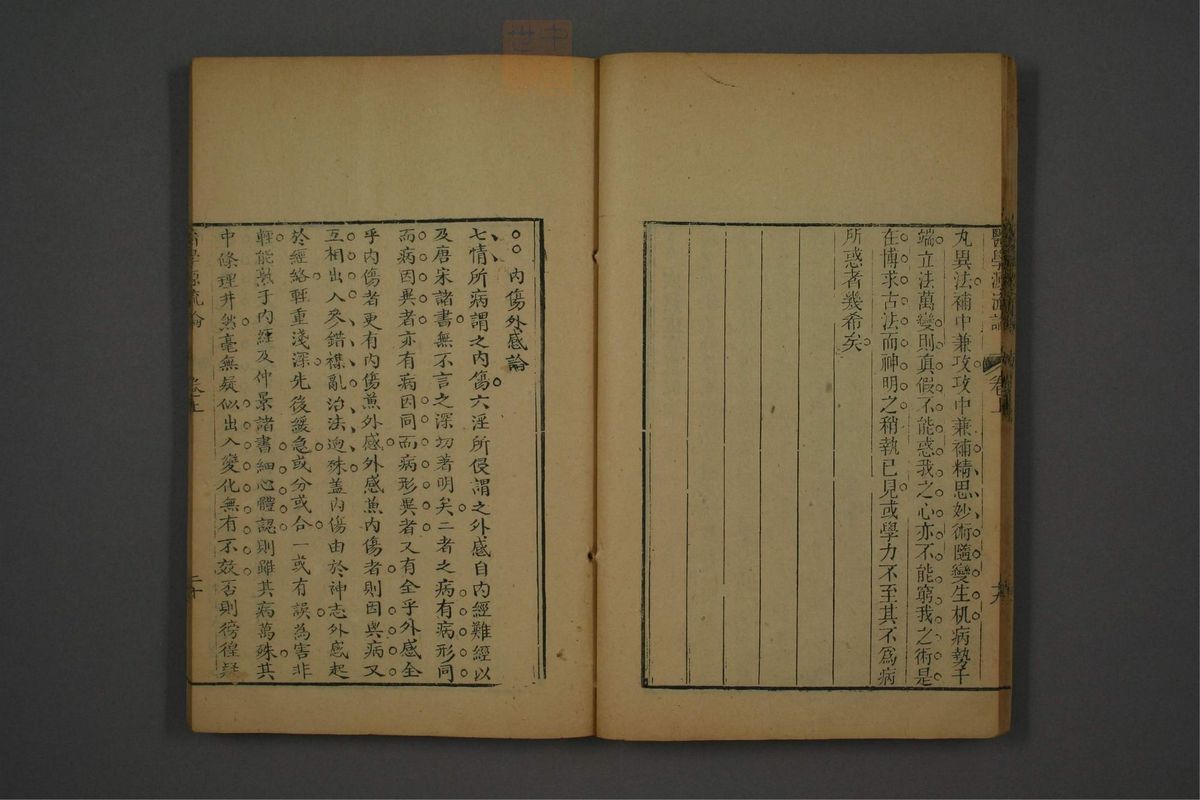 醫學源流論 卷上
丸異法補中兼攻攻中兼補精思妙術隨變生机病勢千
端立法萬變則真假不能惑我之心亦不能窮我之術是
在博求古法而神明之稍執已見或學力不至其不爲病
所惑者幾希矣
內傷外感論
七情所病謂之內傷六淫所侵謂之外感自內經難經以
及唐宋諸書無不言之深切著明矣二者之病有病形同
而病因異者亦有病因同而病形異者又有全乎外感全
乎內傷者更有內傷兼外感外感兼內傷者則因與病又
互相出入參錯襍亂治法迥殊盖內傷由於神志外感起
於經絡輕重淺深先後緩急或分或合一或有誤為害非
輕能熟于內經及仲景諸書細心體認則雖其病萬殊其
中條理井然毫無疑似出入變化無有不效否則徬徨疑